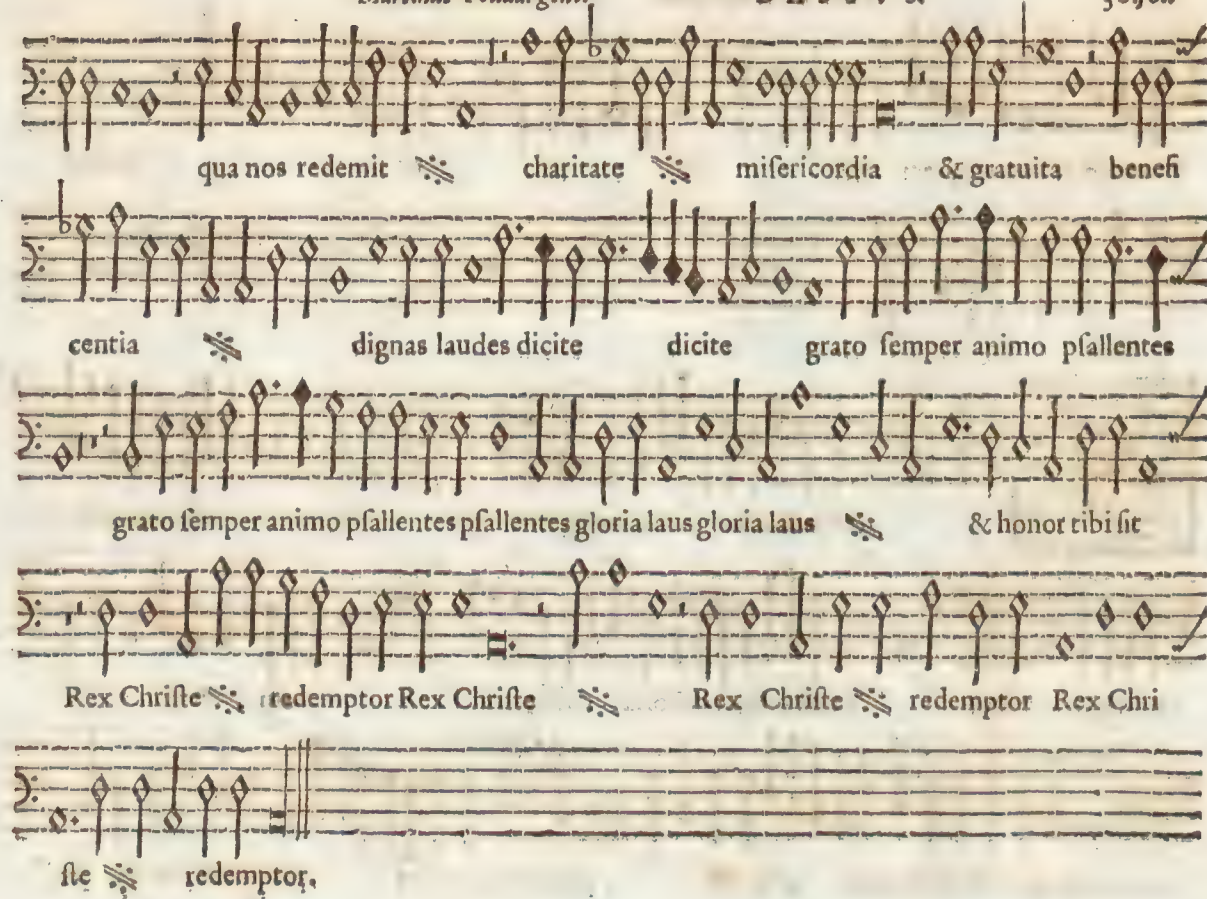 qua nos redemit charitate miſericordia & gratuita benefi
centia dignas laudes dicite dicite grato ſemper animo pſallentes
grato ſemper animo pſallentes pſallentes gloria laus gloria laus & honor tibi ſit
Rex Chriſte redemptor Rex Chriſte Rex Chriſte redemptor Rex Chri
ſte redemptor.